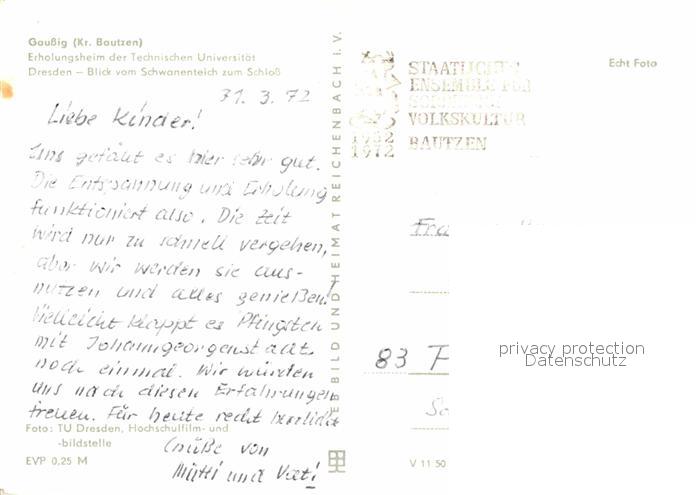 Gaußig (Kr. Bautzen)
Erholungsheim der Technischen Universität
Dresden – Blick vom Schwanenteich zum Schloß
31.3.72
Liebe Kinder!
Uns gefällt es hier sehr gut.
Die Entspannung und Erholung
funktioniert also. Die Zeit
wird nur zu schnell vergehen,
aber wir werden sie aus-
nutzen und alles genießen!
Vielleicht klappt es Pfingsten
mit Johanngeorgenstadt
noch einmal. Wir würden
uns nach diesen Erfahrungen
freuen. Für heute recht herzliche
Grüße von
Mutti und Vati
Foto: TU Dresden, Hochschulfilm- und
-bildstelle
EVP 0,25 M
VEB BILD UND HEIMAT REICHENBACH i. V.
STAATLICHES
ENSEMBLE FÜR
VOLKSKULTUR
1952
1972 BAUTZEN
Echt Foto
83
privacy protection
Datenschutz
V 11 50